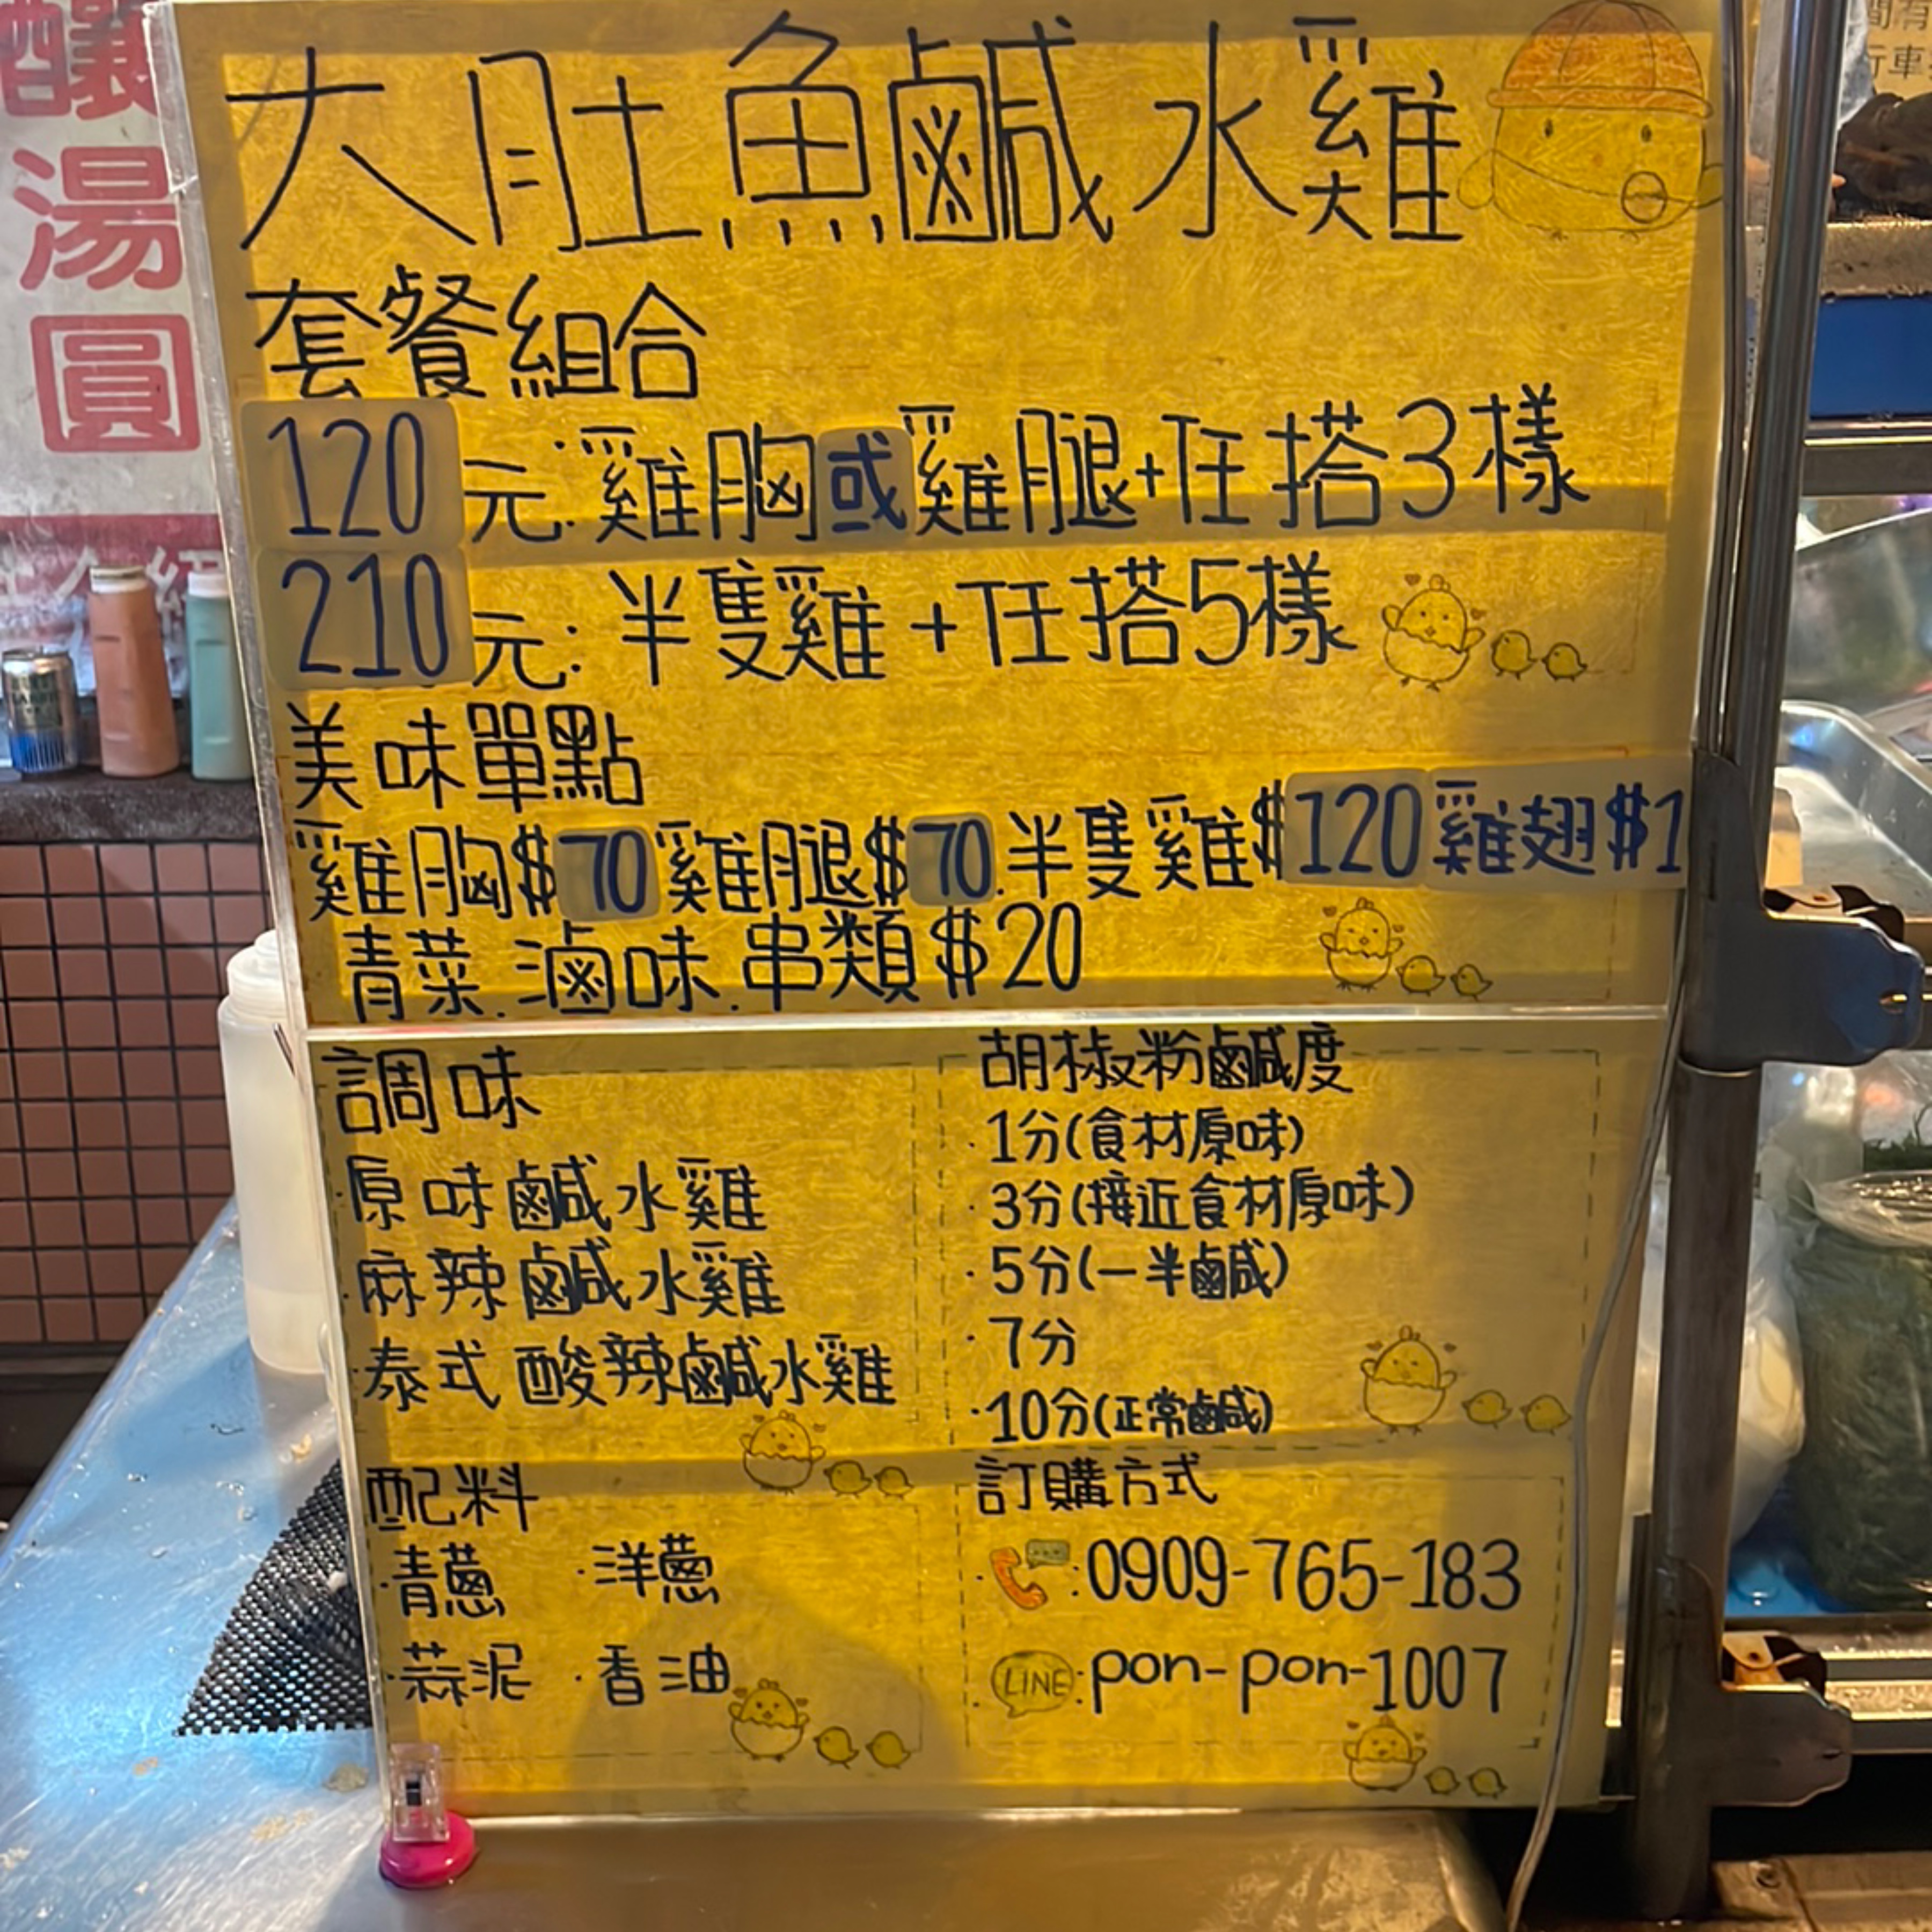 釀
湯
圓
間有
行車
大肚魚鹹水雞
套餐組合
120元:雞胸或雞腿+任搭3樣
210元:半隻雞+任搭5樣
美味單點
雞胸$70雞腿$70.半隻雞$120雞翅$1
青菜.滷味.串類$20
調味
·原味鹹水雞
·麻辣鹹水雞
·泰式酸辣鹹水雞
胡椒粉鹹度
·1分(食材原味)
·3分(接近食材原味)
·5分(一半鹹)
·7分
·10分(正常鹹)
配料
·青蔥 ·洋蔥
·蒜泥 ·香油
訂購方式
·:0909-765-183
·LINE:pon-pon-1007